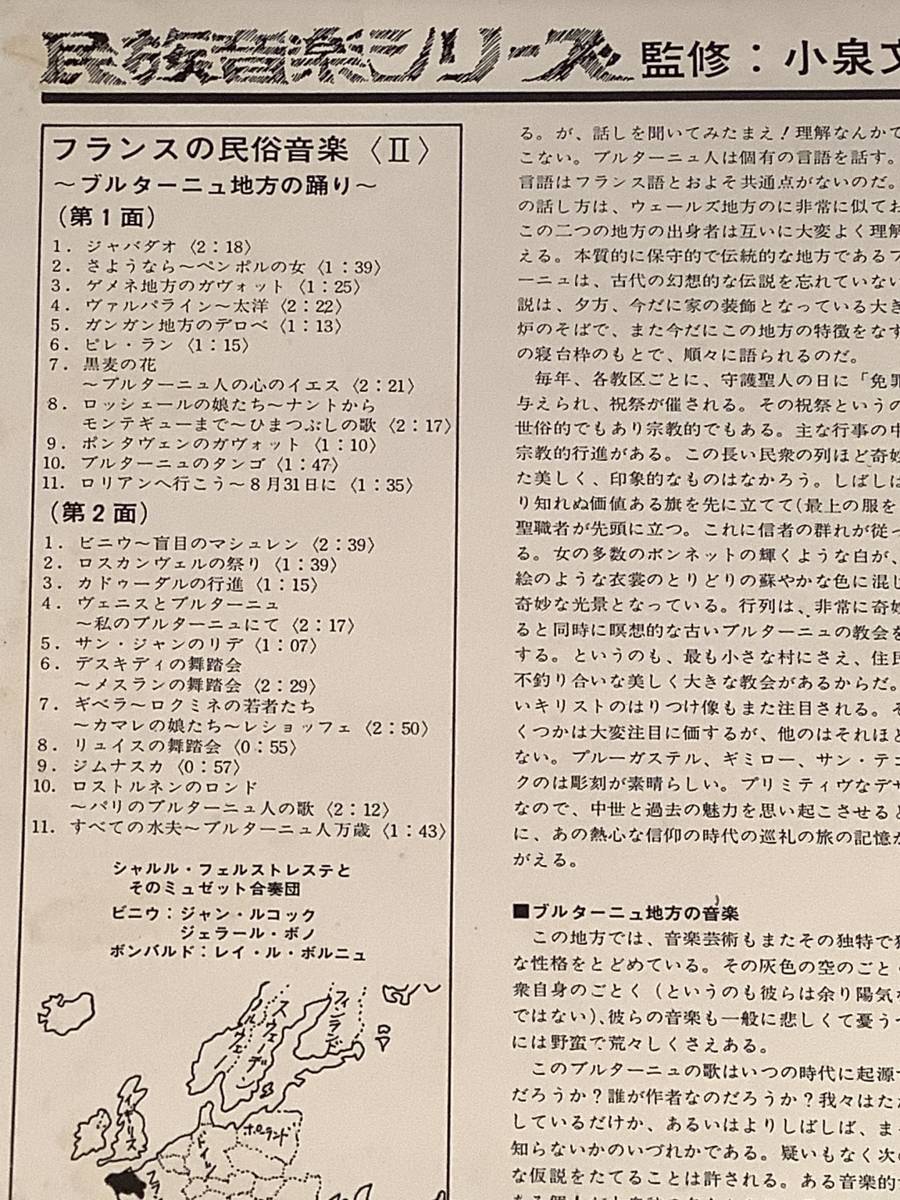 民族音楽シリーズ 監修：小泉文
フランスの民俗音楽〈Ⅱ〉
～ブルターニュ地方の踊り～
（第１面）
1．ジャバダオ〈2：18〉
2．さようなら～ペンポルの女〈1：39〉
3．ゲメネ地方のガヴォット〈1：25〉
4．ヴァルパライン～太洋〈2：22〉
5．ガンガン地方のデロベ〈1：13〉
6．ピレ・ラン〈1：15〉
7．黒麦の花
～ブルターニュ人の心のイエス〈2：21〉
8．ロッシェールの娘たち～ナントから
モンテギューまで～ひまつぶしの歌〈2：17〉
9．ポンタヴェンのガヴォット〈1：10〉
10．ブルターニュのタンゴ〈1：47〉
11．ロリアンへ行こう～８月31日に〈1：35〉
（第２面）
1．ビニウ～盲目のマシュレン〈2：39〉
2．ロスカンヴェルの祭り〈1：39〉
3．カドゥーダルの行進〈1：15〉
4．ヴェニスとブルターニュ
～私のブルターニュにて〈2：17〉
5．サン・ジャンのリデ〈1：07〉
6．デスキディの舞踏会
～メスランの舞踏会〈2：29〉
7．ギベラ～ロクミネの若者たち
～カマレの娘たち～レショッフェ〈2：50〉
8．リュイスの舞踏会〈0：55〉
9．ジムナスカ〈0：57〉
10．ロストルネンのロンド
～パリのブルターニュ人の歌〈2：12〉
11．すべての水夫～ブルターニュ人万歳〈1：43〉
シャルル・フェルストレステと
そのミュゼット合奏団
ビニウ：ジャン・ルコック
ジェラール・ボノ
ボンバルド：レイ・ル・ボルニュ
ノルウェー
スウェーデン
フィンランド
イギリス
ポーランド
ドイツ
フラ
る。が、話しを聞いてみたまえ！理解なんかで
こない。ブルターニュ人は個有の言語を話す。
言語はフランス語とおよそ共通点がないのだ。
の話し方は、ウェールズ地方のに非常に似てお
この二つの地方の出身者は互いに大変よく理解
える。本質的に保守的で伝統的な地方であるブ
ーニュは、古代の幻想的な伝説を忘れていない
説は、夕方、今だに家の装飾となっている大き
炉のそばで、また今だにこの地方の特徴をなす
の寝台枠のもとで、順々に語られるのだ。
毎年、各教区ごとに、守護聖人の日に「免罪
与えられ、祝祭が催される。その祝祭というの
世俗的でもあり宗教的でもある。主な行事の中
宗教的行進がある。この長い民衆の列ほど奇妙
た美しく、印象的なものはなかろう。しばしば
り知れぬ価値ある旗を先に立てて（最上の服を
聖職者が先頭に立つ。これに信者の群れが従っ
る。女の多数のボンネットの輝くような白が、
絵のような衣裳のとりどりの蘇やかな色に混じ
奇妙な光景となっている。行列は、非常に奇妙
ると同時に瞑想的な古いブルターニュの教会を
する。というのも、最も小さな村にさえ、住民
不釣り合いな美しく大きな教会があるからだ。
いキリストのはりつけ像もまた注目される。そ
くつかは大変注目に価するが、他のはそれほど
ない。プルーガステル、ギミロー、サン・テゴ
クのは彫刻が素晴らしい。プリミティヴなデザ
なので、中世と過去の魅力を思い起こさせると
に、あの熱心な信仰の時代の巡礼の旅の記憶が
がえる。
■ブルターニュ地方の音楽
この地方では、音楽芸術もまたその独特で独
な性格をとどめている。その灰色の空のごとく
衆自身のごとく（というのも彼らは余り陽気な
ではない）、彼らの音楽も一般に悲しくて憂うつ
には野蛮で荒々しくさえある。
このブルターニュの歌はいつの時代に起源す
だろうか？誰が作者なのだろうか？我々はただ
しているだけか、あるいはよりしばしば、まる
知らないかのいづれかである。疑いもなく次の
な仮説をたてることは許される。ある音楽的す